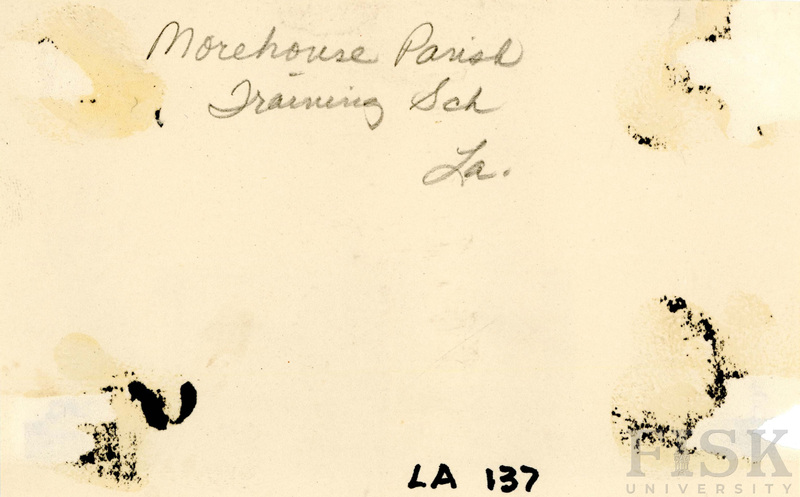 Morehouse Parish
Training Sch
La.
LA 137
FISK
UNIVERSITY